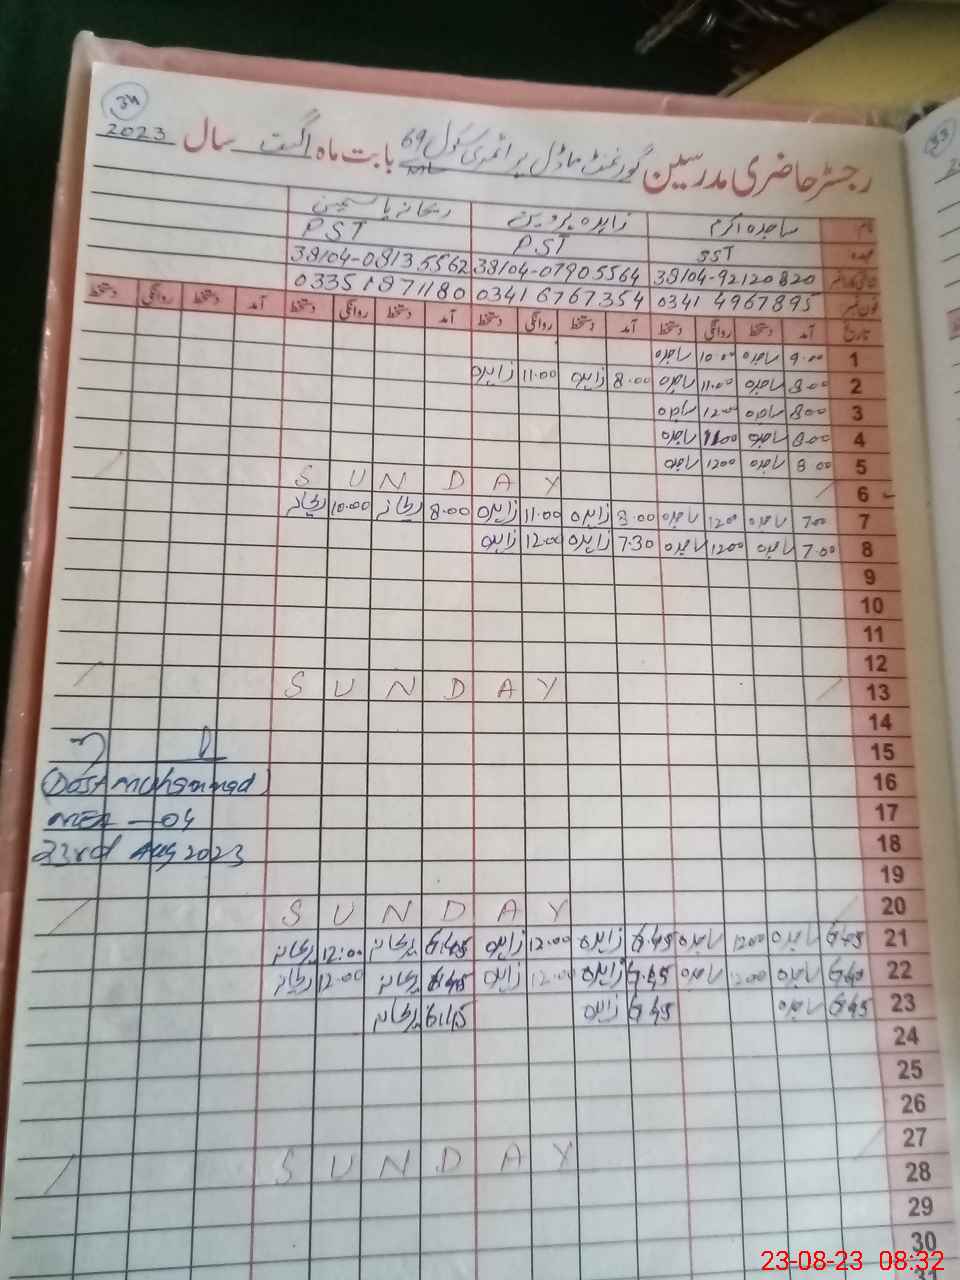 34
رجسٹر حاضری مدرسین گورنمنٹ ماڈل پرائمری سکول 69 ML بابت ماہ اگست سال 2023
نام ساجدہ اکرم زاہدہ پروین ریحانہ یاسمین
عہدہ SST PST PST
38104-92120820 38104-07905564 38104-08135562
فون نمبر 0341 4967895 0341 6767354 0335 1971180
تاریخ آمد دستخط روانگی دستخط آمد دستخط روانگی دستخط آمد دستخط روانگی دستخط آمد دستخط روانگی دستخط
1 ساجدہ 10:00 ساجدہ
2 8:00 ساجدہ 11:00 ساجدہ 8:00 زاہدہ 11:00 زاہدہ
3 8:00 ساجدہ 12:00 ساجدہ
4 8:00 ساجدہ 11:00 ساجدہ
5 8:00 ساجدہ 12:00 ساجدہ
6 SUNDAY
7 7:00 ساجدہ 12:00 ساجدہ 8:00 زاہدہ 11:00 زاہدہ 8:00 ریحانہ 10:00 ریحانہ
8 7:00 ساجدہ 12:00 ساجدہ 7:30 زاہدہ 12:00 زاہدہ
9
10
11
12
13 SUNDAY
14
15
16 (Dost Muhammad)
17 MEA - 04
18 23rd Aug 2023
19
20 SUNDAY
21 6:45 ساجدہ 12:00 ساجدہ 6:45 زاہدہ 12:00 زاہدہ 6:45 ریحانہ 12:00 ریحانہ
22 6:45 ساجدہ 12:00 ساجدہ 6:45 زاہدہ 12:00 زاہدہ 6:45 ریحانہ 12:00 ریحانہ
23 6:45 ساجدہ 6:45 زاہدہ 6:45 ریحانہ
24
25
26
27 SUNDAY
28
29
30
31
33
23-08-23 08:32